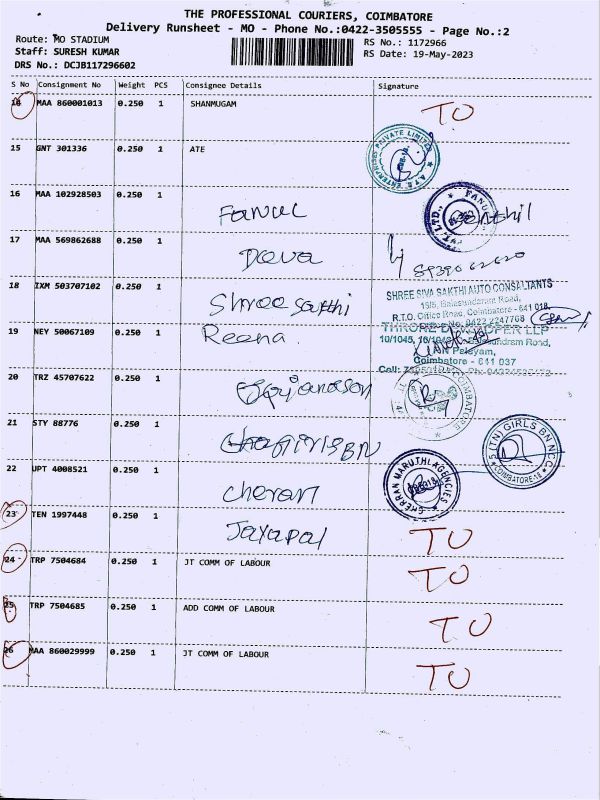 THE PROFESSIONAL COURIERS, COIMBATORE
Delivery Runsheet - MO - Phone No.:0422-3505555 - Page No.:2
Route: MO STADIUM
Staff: SURESH KUMAR
DRS No.: DCJB117296602
RS No.: 1172966
RS Date: 19-May-2023
S No Consignment No Weight PCS Consignee Details Signature
MAA 860001013 0.250 1 SHANMUGAM TO
15 GNT 301336 0.250 1 ATE
16 MAA 102928503 0.250 1 Fanuc
17 MAA 569862688 0.250 1 Deeva
18 IXM 503707102 0.250 1 Shree sakthi
SHREE SIVA SAKTHI AUTO CONSALTANTS
R.T.O. Office Road, Coimbatore - 641 018.
19 NEY 50067109 0.250 1 Reena
Coimbatore - 641 037
20 TRZ 45707622 0.250 1
21 STY 88776 0.250 1
5 (TN) GIRLS BN NCC
COIMBATORE-18
22 UPT 4008521 0.250 1 Cheran
CHERRAN MARUTHI AGENCIES
23 TEN 1997448 0.250 1 Jayapal TO
24 TRP 7504684 0.250 1 JT COMM OF LABOUR TO
25 TRP 7504685 0.250 1 ADD COMM OF LABOUR TO
26 MAA 860029999 0.250 1 JT COMM OF LABOUR TO